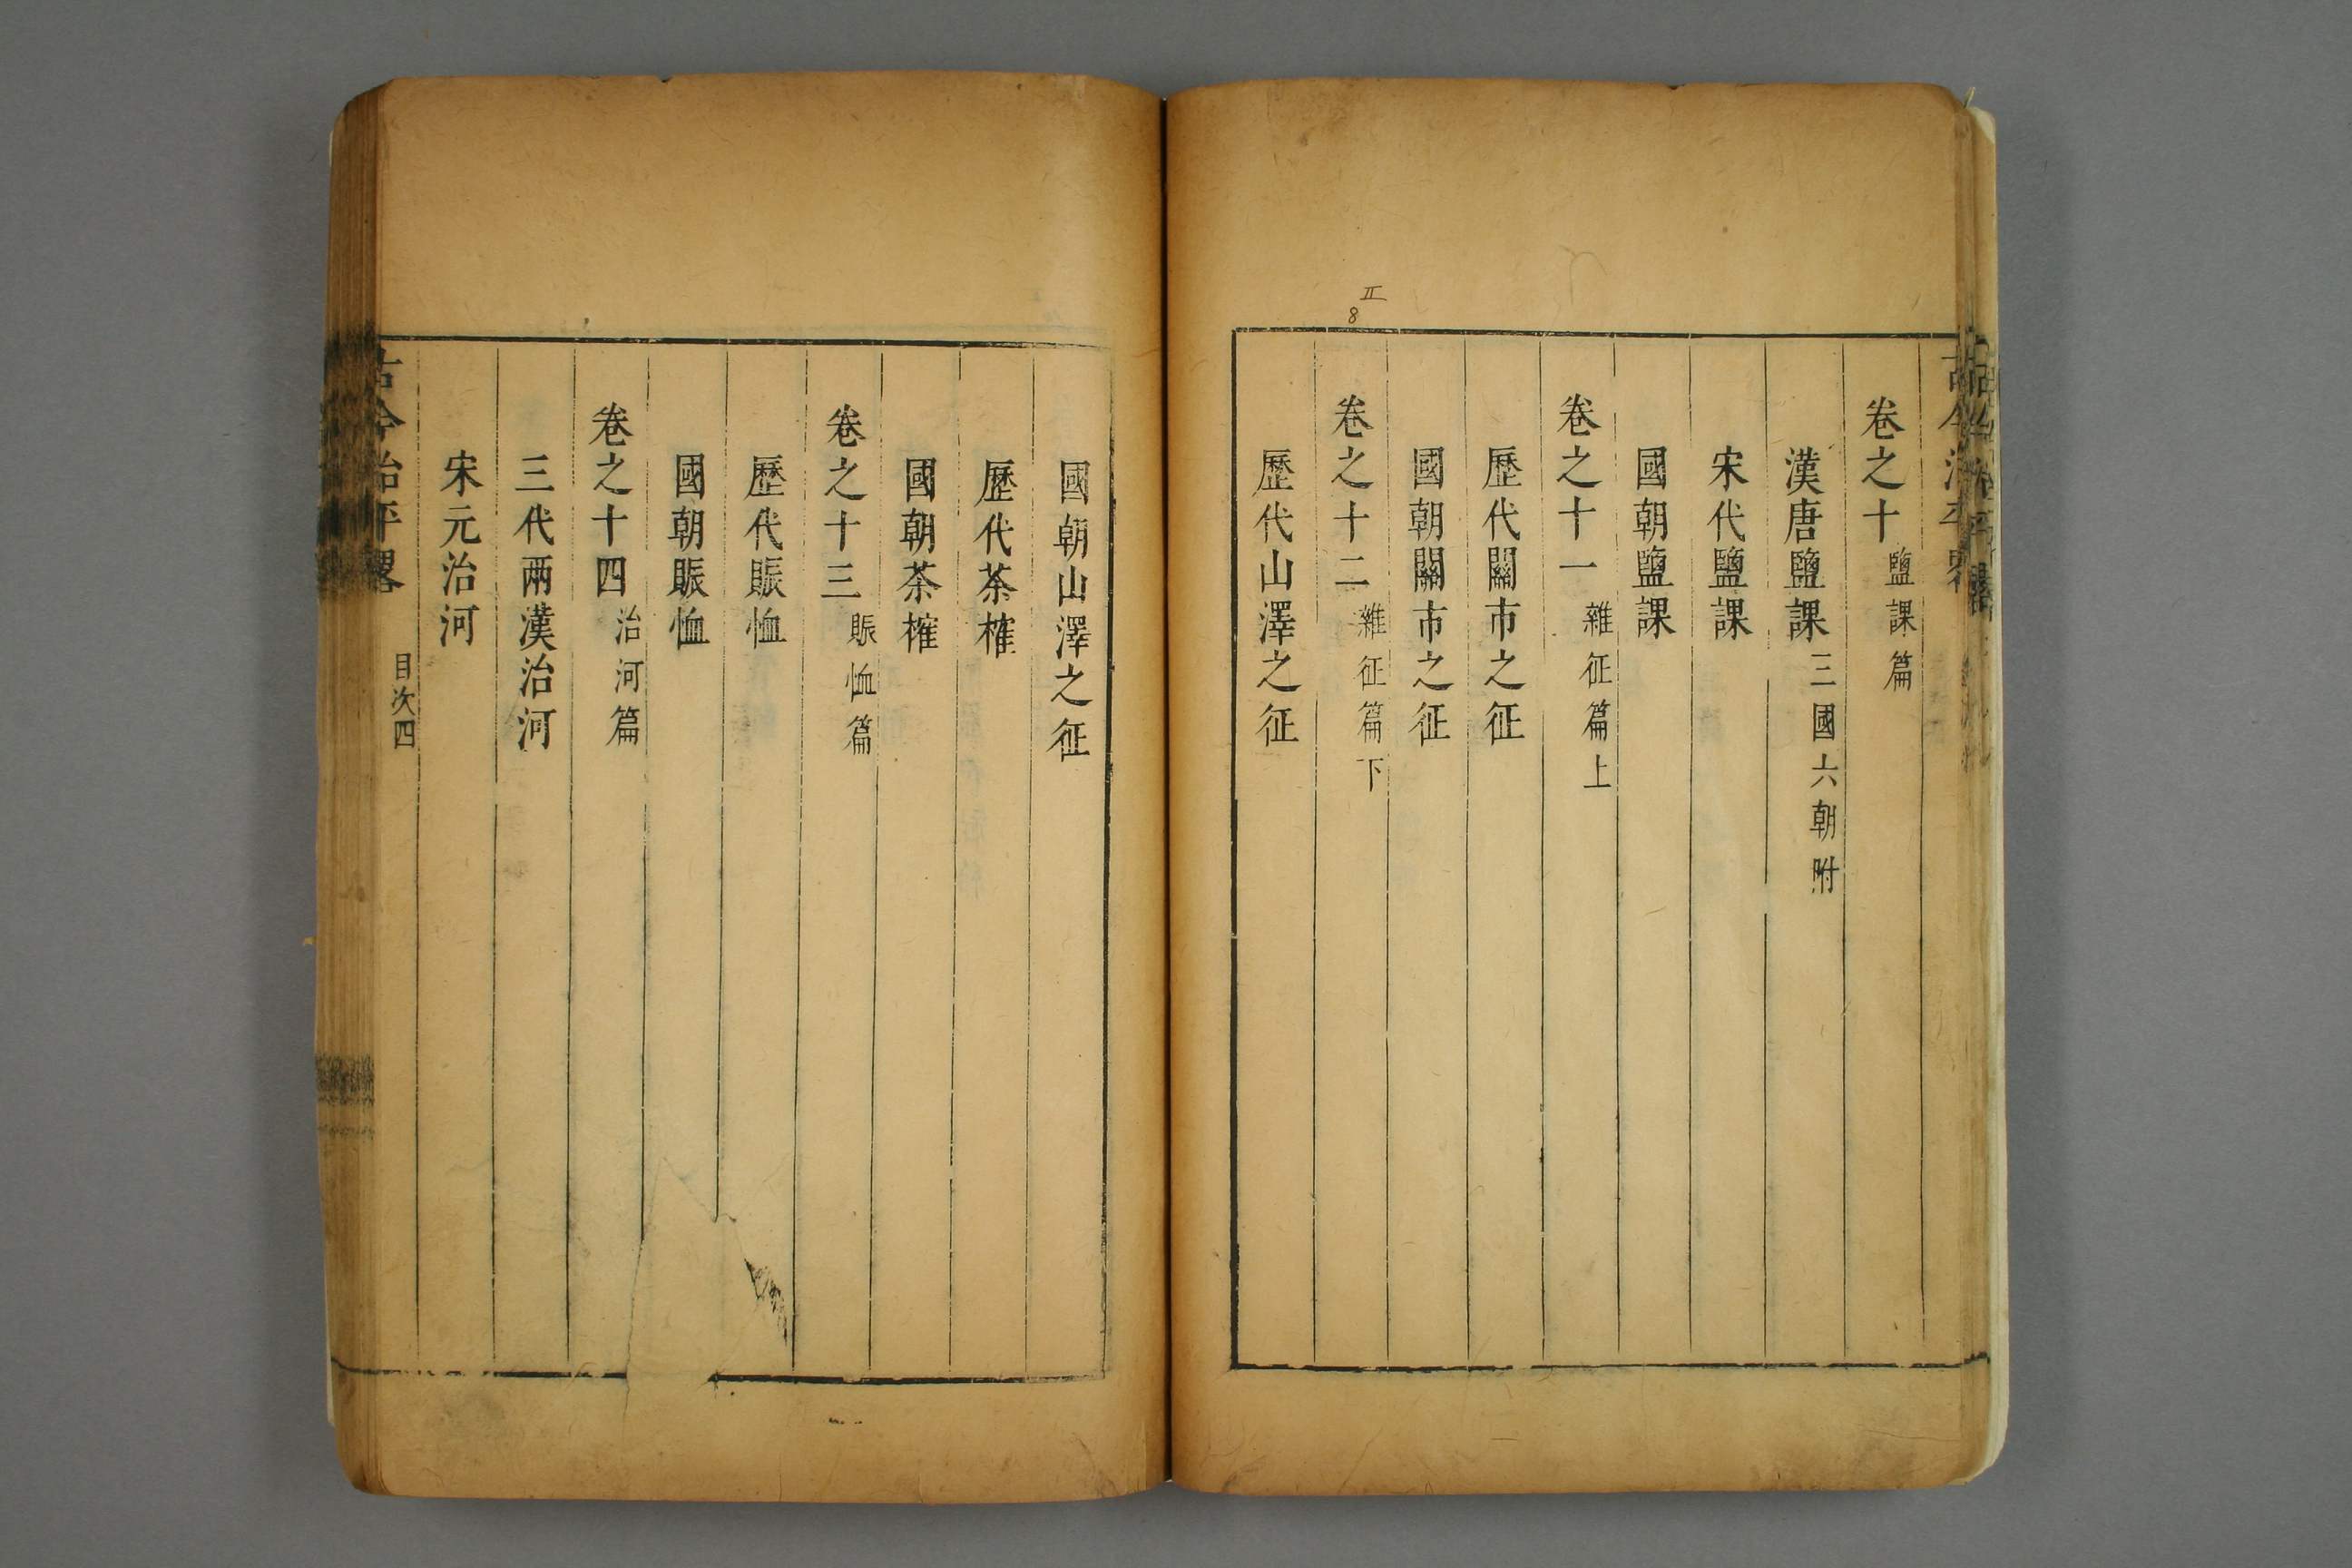 卷之十 鹽課篇
漢唐鹽課 三國六朝附
宋代鹽課
國朝鹽課
卷之十一 雜征篇上
歷代關市之征
國朝關市之征
卷之十二 雜征篇下
歷代山澤之征
II
8
國朝山澤之征
歷代茶榷
國朝茶榷
卷之十三 賑恤篇
歷代賑恤
國朝賑恤
卷之十四 治河篇
三代兩漢治河
宋元治河
古今治平畧 目次四